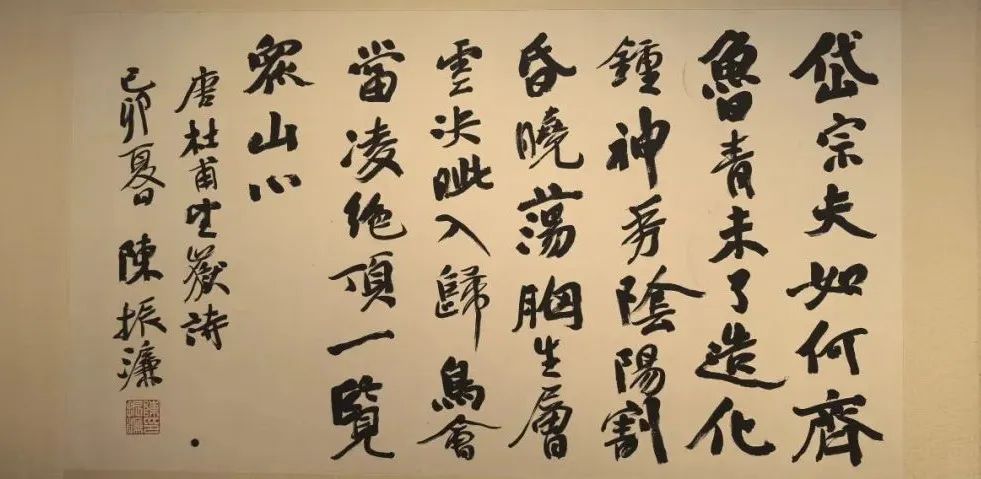 岱宗夫如何齊
魯青未了造化
鍾神秀陰陽割
昏曉蕩胸生層
雲決眦入歸鳥會
當凌絕頂一覽
眾山小
唐杜甫望嶽詩
己卯夏日 陳振濂